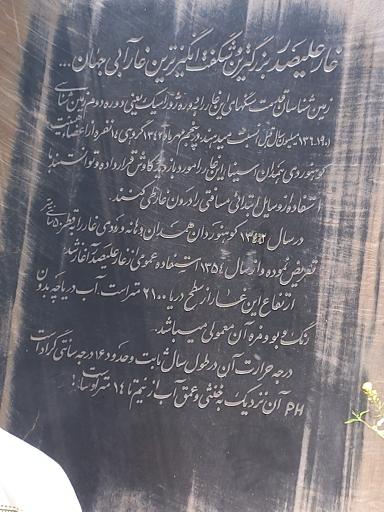 غار علیصدر بزرگترین و شگفت انگیزترین غار آبی جهان ...
زمین شناسان قدمت سنگهای این غار را به دوره ژوراسیک یعنی دوره دوم زمین شناسی
(۱۹۰-۱۳۶) میلیون سال قبل نسبت میدهند. در پنجم مهرماه ۱۳۴۲ گروهی ۱۴ نفره از اعضاء هیئت
کوهنوردی همدان این غار را مورد بازدید و کاوش قرار داده و توانستند با
استفاده از وسایل ابتدائی مسافتی را درون غار طی کنند.
در سال ۱۳۴۶ کوهنوردان همدان دهانه ورودی غار را به قطر ۵۰ سانتی متر
تعریض نموده و از سال ۱۳۵۴ استفاده عمومی از غار علیصدر آغاز شد
ارتفاع این غار از سطح دریا ۲۱۰۰ متر است. آب دریاچه بدون
رنگ و بو و مزه آن معمولی میباشد.
درجه حرارت آن در طول سال ثابت و حدود ۱۶ درجه سانتی گراد است
PH آن نزدیک به خنثی و عمق آب از نیم تا ۱۴ متر